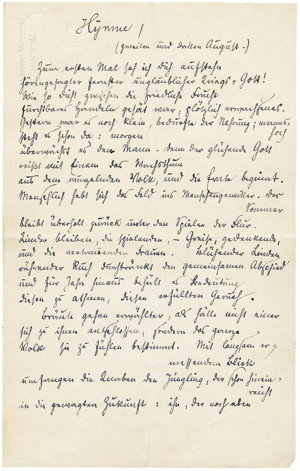 Hymne I
(zweiten und dritten August.)
Zum ersten Mal seh ich dich aufstehn
hörengesagter fernster unglaublicher Kriegs-Gott!
Wie so dicht zwischen die friedliche Frucht
furchtbares Handeln gesät war, plötzlich erwachsenes.
Gestern war es noch klein, bedurfte der Nahrung, mannshoch
steht es schon da: morgen
überwächst es den Mann. Denn der glühende Gott
reißt mit Einem das Wachstum
aus dem wurzelnden Volk, und die Ernte beginnt.
Menschlich hebt sich das Feld ins Menschengewitter. Der Sommer
bleibt überholt zurück unter den Spielen der Flur.
Kinder bleiben, die spielenden, Greise, gedenkende,
und die vertrauenden Frauen. Blühender Linden
rührender Ruch durchtränkt den gemeinsamen Abschied
und für Jahre hinaus behält es Bedeutung
diesen zu athmen, diesen erfüllten Geruch.
Bräute gehen erwählter, als hätte nicht einer
sich zu ihnen entschlossen, sondern das ganze
Volk sie zu fühlen bestimmt. Mit langsam ermessendem Blick
umfangen die Knaben den Jüngling, der schon hineinreicht
in die gewagtere Zukunft: ihn, der noch eben